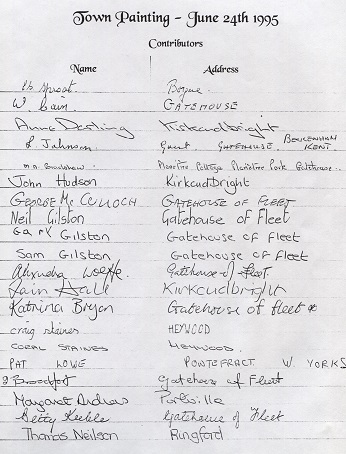 Town Painting - June 24th 1995
Contributors
Name Address
Sproat. Borgue.
W. Cain GATEHOUSE
Anna Dersling Kirkcudbright
J. Johnson Guest, GATEHOUSE, BECKENHAM KENT.
M.A. Bradshaw. Park Gatehouse.
John Hudson Kirkcudbright
GEORGE Mc CULLOCH GATEHOUSE OF FLEET
Neil Gilston Gatehouse of Fleet
Gary Gilston Gatehouse of Fleet
Sam Gilston Gatehouse of Fleet
Alexandra Wolffe. Gatehouse of Fleet
Iain Hall Kirkcudbright
Katrina Bryan Gatehouse of fleet *
craig staines HEYWOOD
CORAL STAINES HEYWOOD.
PAT LOWE PONTEFRACT W. YORKS
Gatehouse of Fleet
Margaret Andrews Portsville
Betty Keeble Gatehouse of Fleet
Thomas Neilson Ringford